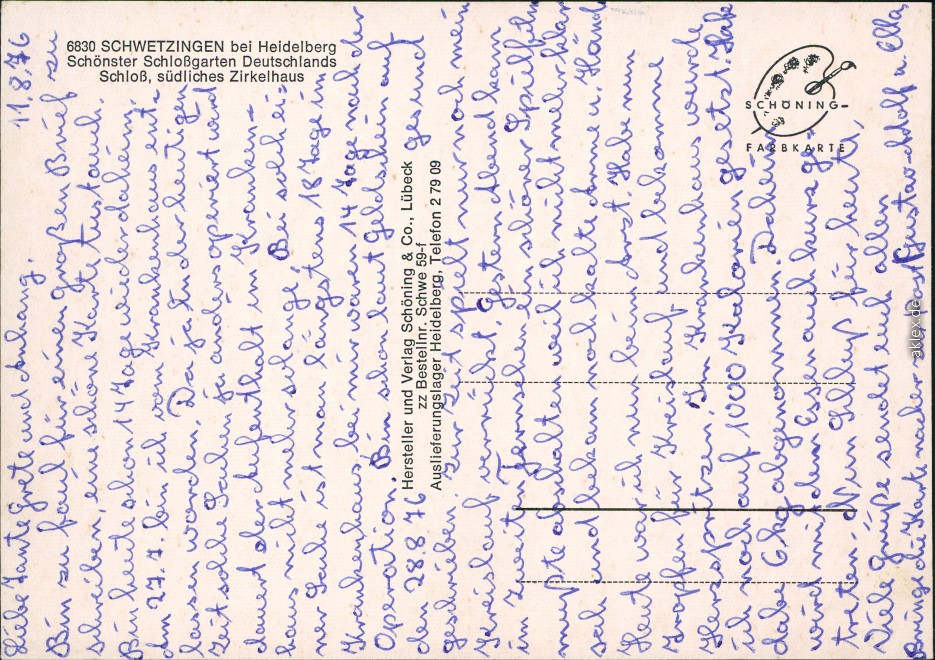 6830 SCHWETZINGEN bei Heidelberg
Schönster Schloßgarten Deutschlands
Schloß, südliches Zirkelhaus
SCHÖNING-
FARBKARTE
Hersteller und Verlag Schöning & Co., Lübeck
zz Bestellnr. Schwe 59-f
Auslieferungslager Heidelberg, Telefon 2 79 09
11.8.76
Liebe Tante Grete und Anhang.
Bin zu faul für einen großen Brief zu
schreiben, eine schöne Karte tuts auch.
Bin heute schon 14 Tage wieder daheim.
Am 27.7. bin ich vom Krankenhaus ent-
lassen worden. Da ja in der heutigen
Zeit solche Sachen ja anders operiert wird
dauert der Aufenthalt im Kranken-
haus nicht mehr solange. Bei solch ei-
ner Sache ist man längstens 18 Tage im
Krankenhaus bei mir waren 14 Tage nach der
Operation. Bin schon laut Geldschein auf
den 28.8.76 gesund
geschrieben. Zur Zeit spielt nur noch mein
Kreislauf verrückt, gestern Abend kam
im zweiten Fernsehen ein schöner Spielfilm
mußte abschalten weil ich nicht mehr klar
sah und bekam noch kalte Arme u. Hände
Heute war ich nun beim Arzt. Habe nun
Tropfen für Kreislauf und bekomme
Herzspritzen. Im Krankenhaus wurde
ich noch auf 1000 Kalorien gesetzt. Habe
dabei 6 kg abgenommen. Daheim
wird mit dem Essen auch kurz ge-
treten. Nun Schluß für heute,
Viele Grüße sendet euch allen
Gustav Adolf u. Ella,
Bringe die Karte nacher zur Post
aklex.de